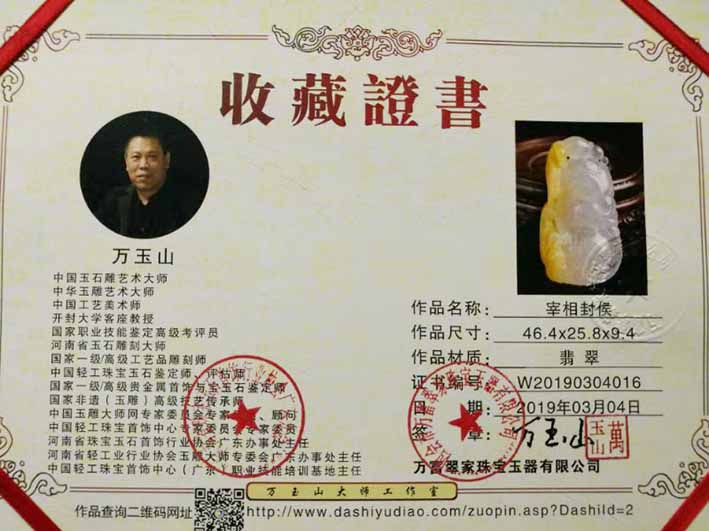 收藏證書
万玉山
中国玉石雕艺术大师
中华玉雕艺术大师
中国工艺美术师
开封大学客座教授
国家职业技能鉴定高级考评员
河南省玉石雕刻大师
国家一级/高级工艺品雕刻师
中国轻工珠宝玉石鉴定师、评估师
国家一级/高级贵金属首饰与宝玉石鉴定师
国家非遗（玉雕）高级技艺传承师
玉雕大师网专家委员会专家、顾问
中国轻工珠宝首饰中心专家委员会专家
河南省珠宝玉石首饰行业协会广东办事处主任
河南省轻工业行业协会玉雕大师专委会广东办事处主任
中国轻工珠宝首饰中心（广东）职业技能培训基地主任
作品名称: 宰相封侯
作品尺寸: 46.4x25.8x9.4
作品材质: 翡翠
证书编号: W20190304016
日期: 2019年03月04日
签章: 万玉山
萬玉山
万富翠家珠宝玉器有限公司
万玉山大师工作室
作品查询二维码网址
http://www.dashiyudiao.com/zuopin.asp?DashiId=2